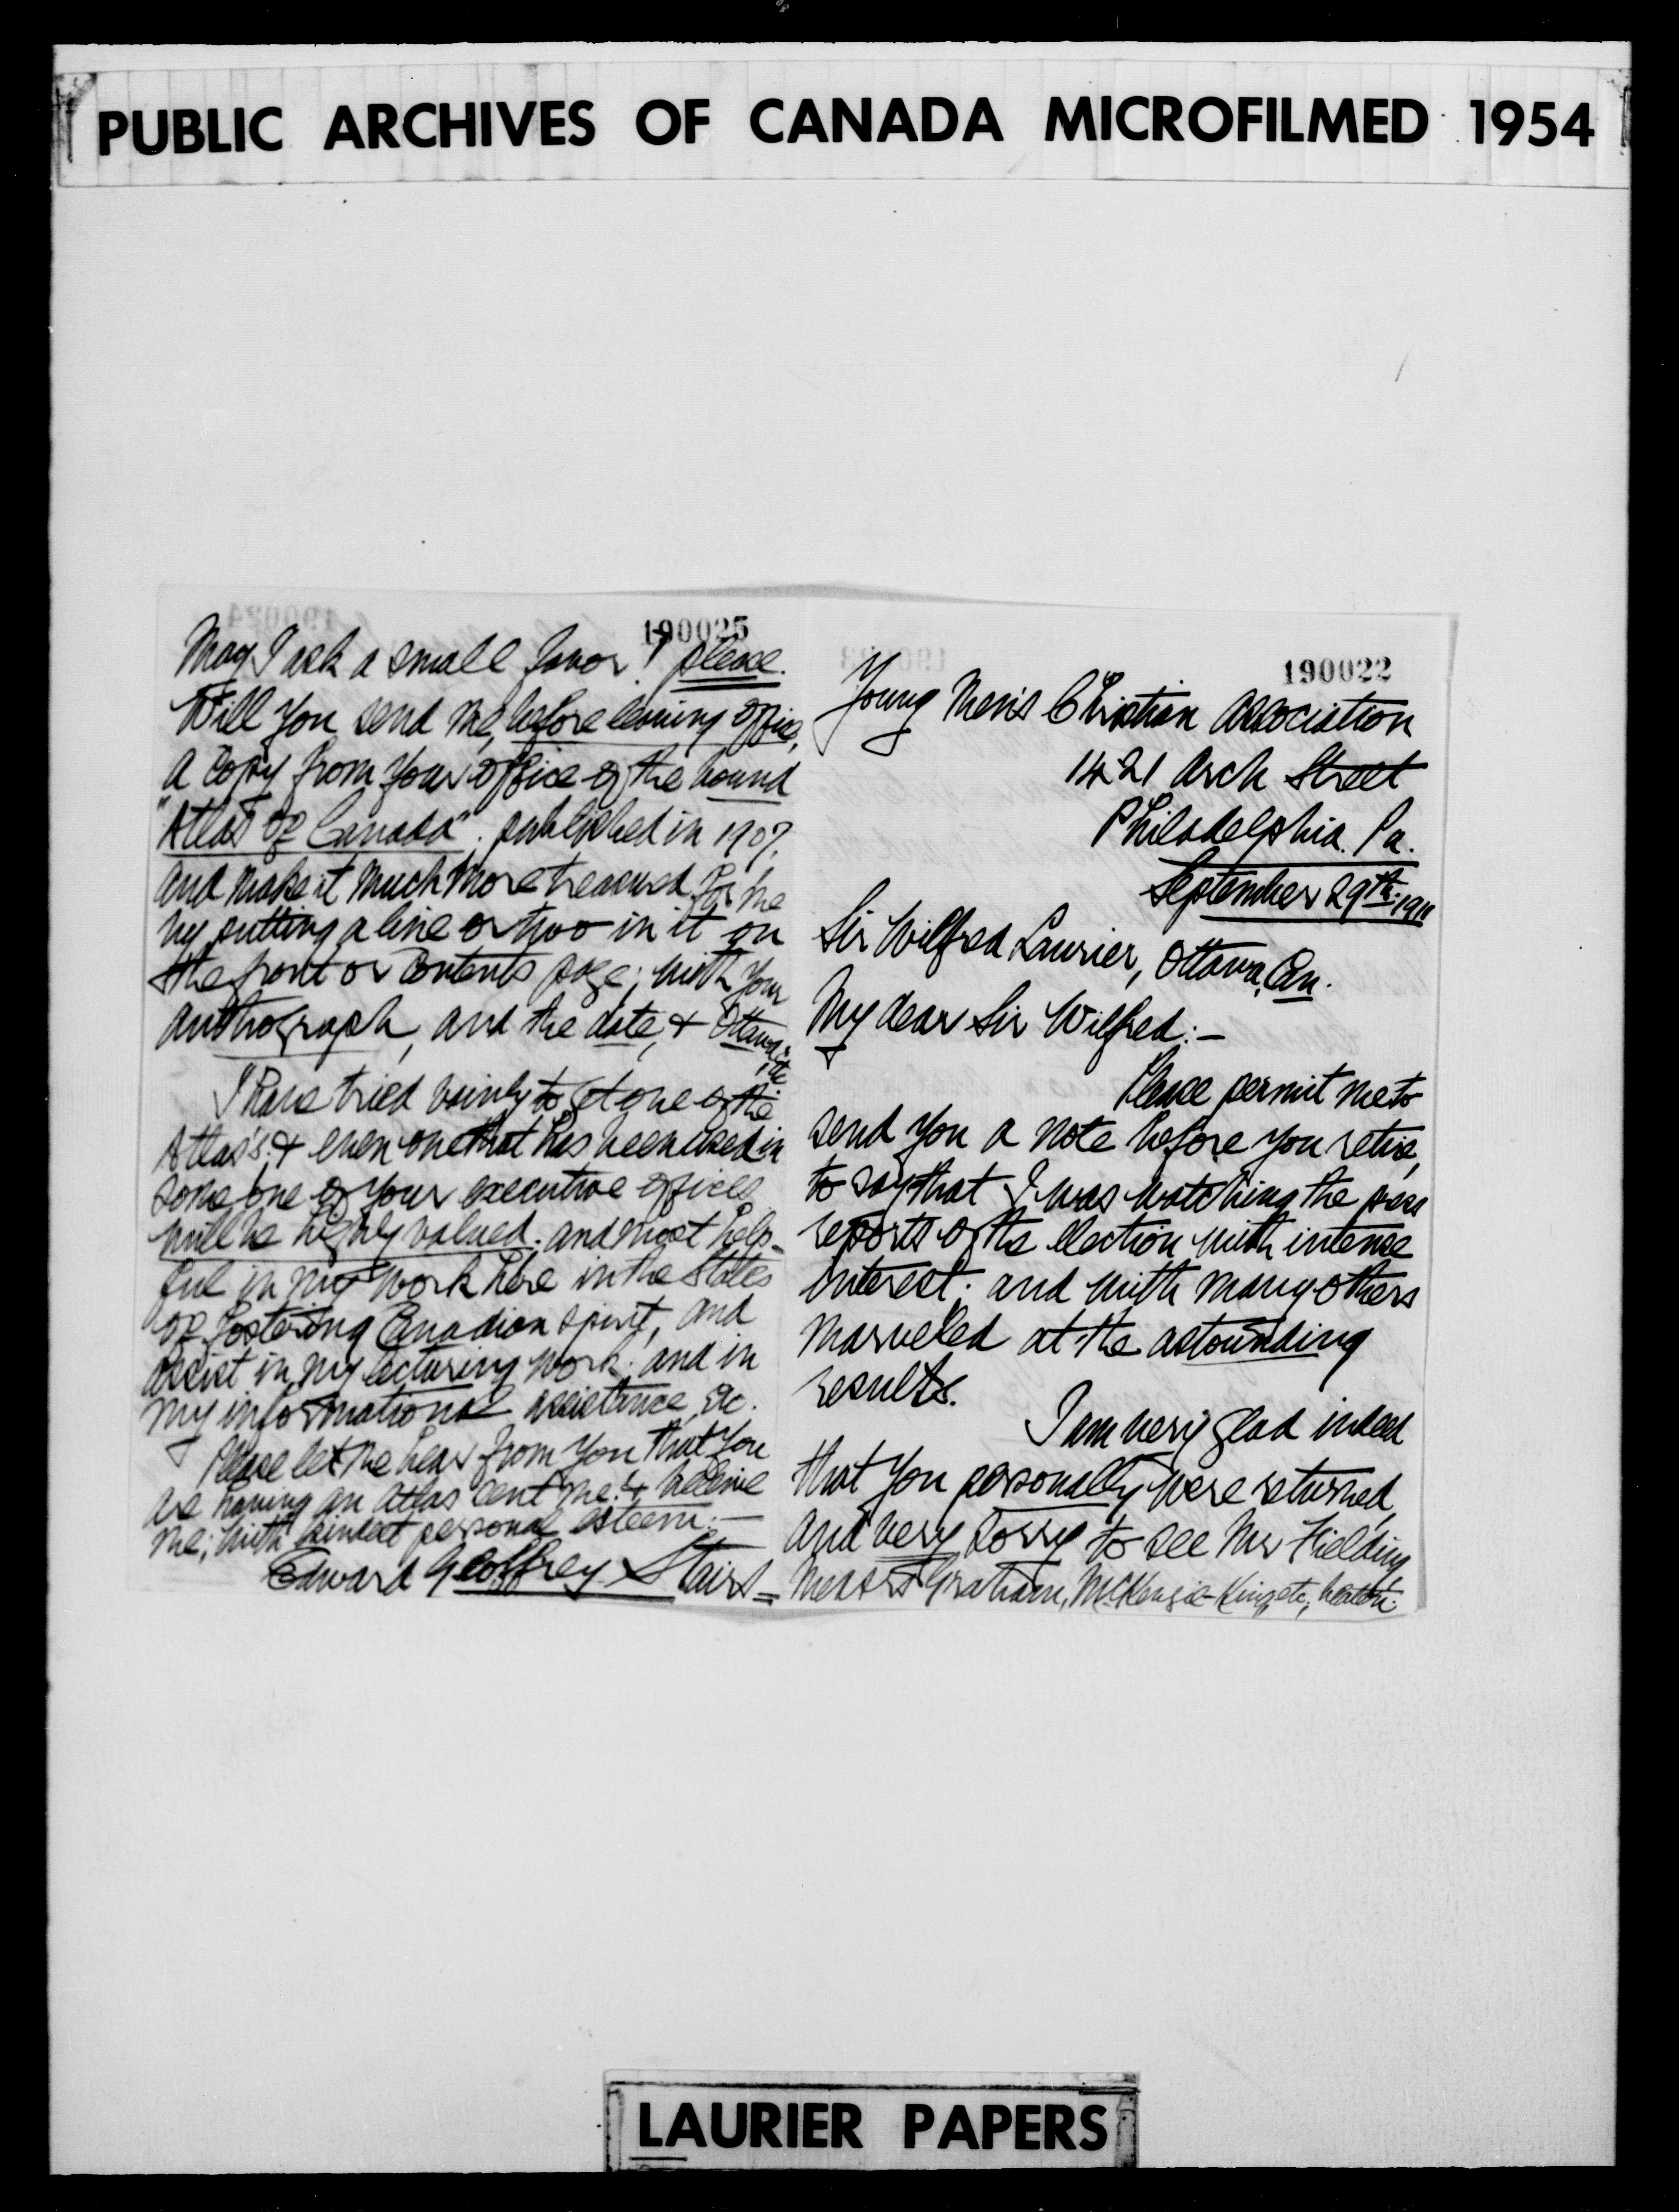 PUBLIC ARCHIVES OF CANADA MICROFILMED 1954
190025
May I ask a small favor! please.
Will you send me, before leaving office,
a copy from your office of the bound
"Atlas of Canada". published in 1907,
and make it much more treasured for me
by putting a line or two in it on
the front or contents page; with your
authograph, and the date, & Ottawa
I have tried vainly to get one of the
Atlas's. & even one that has been used in
some one of your executive offices
will be highly valued; and most help-
ful in my work here in the States
of fostering Canadian spirit, and
assist in my lecturing work. and in
my informational assistance, etc.
Please let me hear from you that you
are having an atlas sent me. & believe
me; with kindest personal esteem:—
Edward Geoffrey Stairs
190022
Young Men's Christian Association
1421 Arch Street
Philadelphia. Pa.
September 29th. 1911
Sir Wilfred Laurier, Ottawa, Can.
My dear Sir Wilfred:—
Please permit me to
send you a note before you retire,
to say that I was watching the press
reports of the election with intense
interest. and with many others
marveled at the astounding
results.
I am very glad indeed
that you personally were returned,
and very sorry to see Mr Fielding
Messrs Graham, McKenzie-King etc, beaten.
LAURIER PAPERS